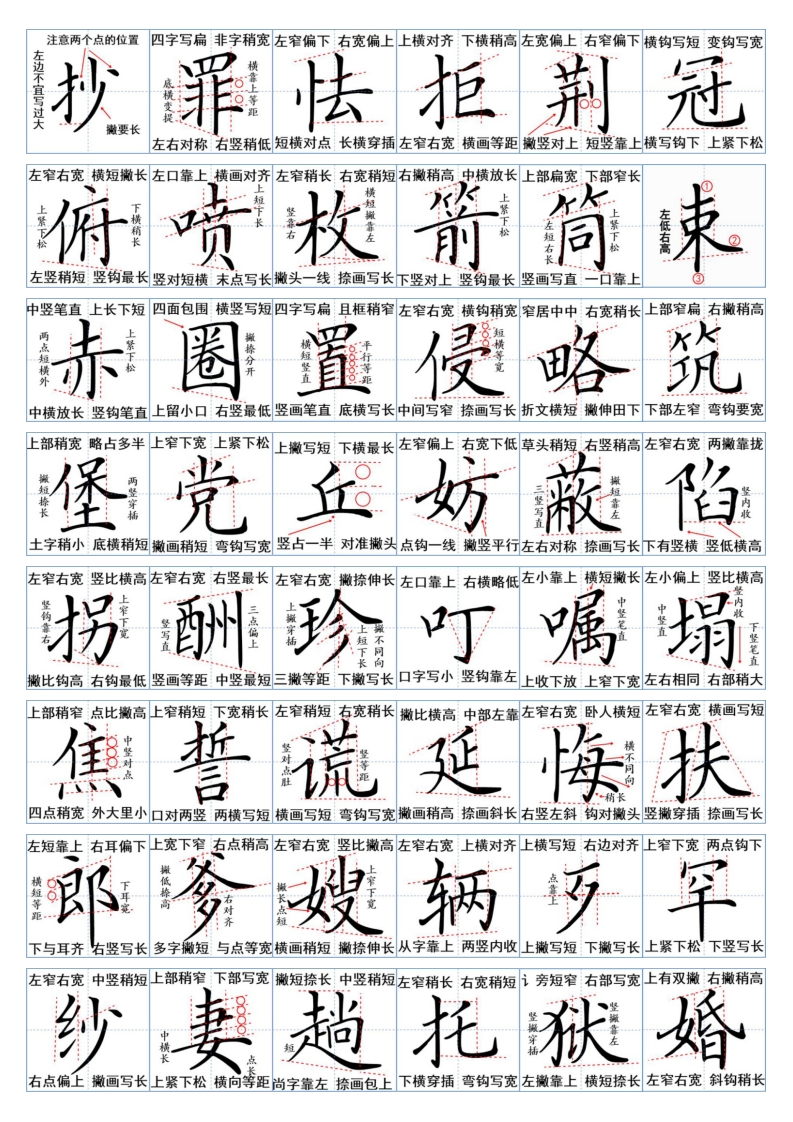 注意两个点的位置
左边不宜写过大
抄
撇要长
四字写扁 非字稍宽
底横变提
罪
横靠上等距
左右对称 右竖稍低
左窄偏下 右宽偏上
怯
短横对点 长横穿插
上横对齐 下横稍高
拒
左窄右宽 横画等距
左宽偏上 右窄偏下
荆
撇竖对上 短竖靠上
横钩写短 变钩写宽
冠
横写钩下 上紧下松
左窄右宽 横短撇长
上紧下松
俯
下横稍长
左竖稍短 竖钩最长
左口靠上 横画对齐
喷
上短下长
竖对短横 末点写长
左窄稍长 右宽稍短
竖靠右
枚
横短撇靠左
撇头一线 捺画写长
右撇稍高 中横放长
箭
上紧下松
下竖对上 竖钩最长
上部扁宽 下部窄长
左短右长
筒
上紧下松
竖画写直 一口靠上
左低右高
束
①
②
③
中竖笔直 上长下短
两点短横外
赤
上紧下松
中横放长 竖钩笔直
四面包围 横竖写短
圈
撇捺分开
上留小口 右竖最低
四字写扁 且框稍窄
横短竖直
置
平行等距
竖画笔直 底横写长
左窄右宽 横钩稍宽
侵
短横等宽
中间写窄 捺画写长
窄居中中 右宽稍长
略
折文横短 撇伸田下
上部窄扁 右撇稍高
筑
下部左窄 弯钩要宽
上部稍宽 略占多半
撇短捺长
堡
两竖穿插
土字稍小 底横稍短
上窄下宽 上紧下松
党
撇画稍短 弯钩写宽
上撇写短 下横最长
丘
竖占一半 对准撇头
左窄偏上 右宽下低
妨
点钩一线 撇竖平行
草头稍短 右竖稍高
三竖写直
蔽
撇短靠左
左右对称 捺画写长
左窄右宽 两撇靠拢
陷
竖内收
下有竖横 竖低横高
左窄右宽 竖比横高
竖钩靠右
拐
上窄下宽
撇比钩高 右钩最低
左窄右宽 右竖最长
竖写直
酬
三点偏上
竖画等距 中竖最短
左窄右宽 撇捺伸长
上撇穿插
珍
上短下长
撇不同向
三撇等距 下撇写长
左口靠上 右横略低
叮
口字写小 竖钩靠左
左小靠上 横短撇长
嘱
中竖笔直
上收下放 上窄下宽
左小偏上 竖比横高
中竖直
塌
竖内收
下竖笔直
左右相同 右部稍大
上部稍窄 点比撇高
焦
中竖对点
四点稍宽 外大里小
上窄稍短 下宽稍长
誓
口对两竖 两横写短
左窄稍短 右宽稍长
竖对点肚
谎
竖等距
横画写短 弯钩写宽
撇比横高 中部左靠
延
撇画稍高 捺画斜长
左窄右宽 卧人横短
悔
横不同向
稍长
右竖左斜 钩对撇头
左窄右宽 横画写短
扶
竖撇穿插 捺画写长
左短靠上 右耳偏下
横短等距
郎
下耳宽
下与耳齐 右竖写长
上宽下窄 右点稍高
撇低捺高
爹
右对齐
多字撇短 与点等宽
左窄右宽 竖比撇高
撇长点短
嫂
上窄下宽
横画稍短 撇捺伸长
左窄右宽 上横对齐
辆
从字靠上 两竖内收
上横写短 右边对齐
点靠上
歹
上撇写短 下撇写长
上窄下宽 两点钩下
罕
上紧下松 下竖写长
左窄右宽 中竖稍短
纱
右点偏上 撇画写长
上部稍窄 下部写宽
中横长
妻
点长
上紧下松 横向等距
撇短捺长 中竖稍短
短
趟
尚字靠左 捺画包上
左窄稍长 右宽稍短
托
下横穿插 弯钩写宽
讠旁短窄 右部写宽
竖撇穿插
狱
竖撇靠左
左撇靠上 横短捺长
上有双撇 右撇稍高
婚
左窄右宽 斜钩稍长